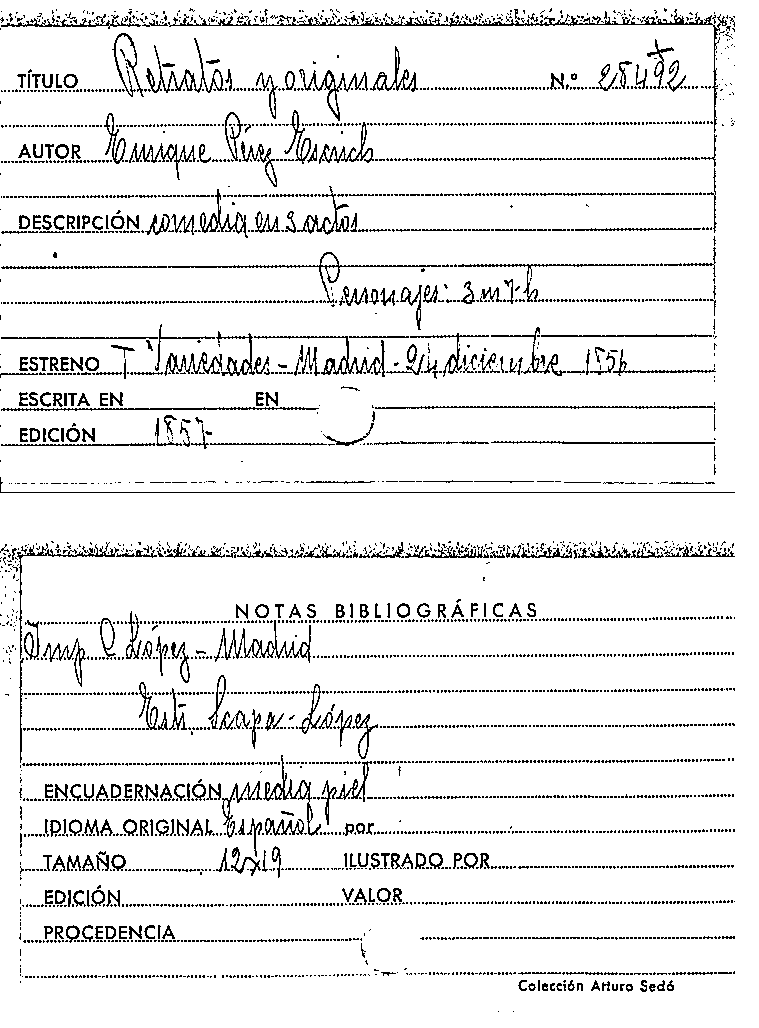 TÍTULO Retratos y originales N.º 28492
AUTOR Enrique Pérez Escrich
DESCRIPCIÓN comedia en 3 actos
Personajes: 3 m 7 h
ESTRENO T Variedades - Madrid - 24 diciembre 1856
ESCRITA EN EN
EDICIÓN 1857
NOTAS BIBLIOGRÁFICAS
Imp C López - Madrid
Estr. López
ENCUADERNACIÓN media piel
IDIOMA ORIGINAL Español por
TAMAÑO 12x19 ILUSTRADO POR
EDICIÓN VALOR
PROCEDENCIA
Colección Arturo Sedó